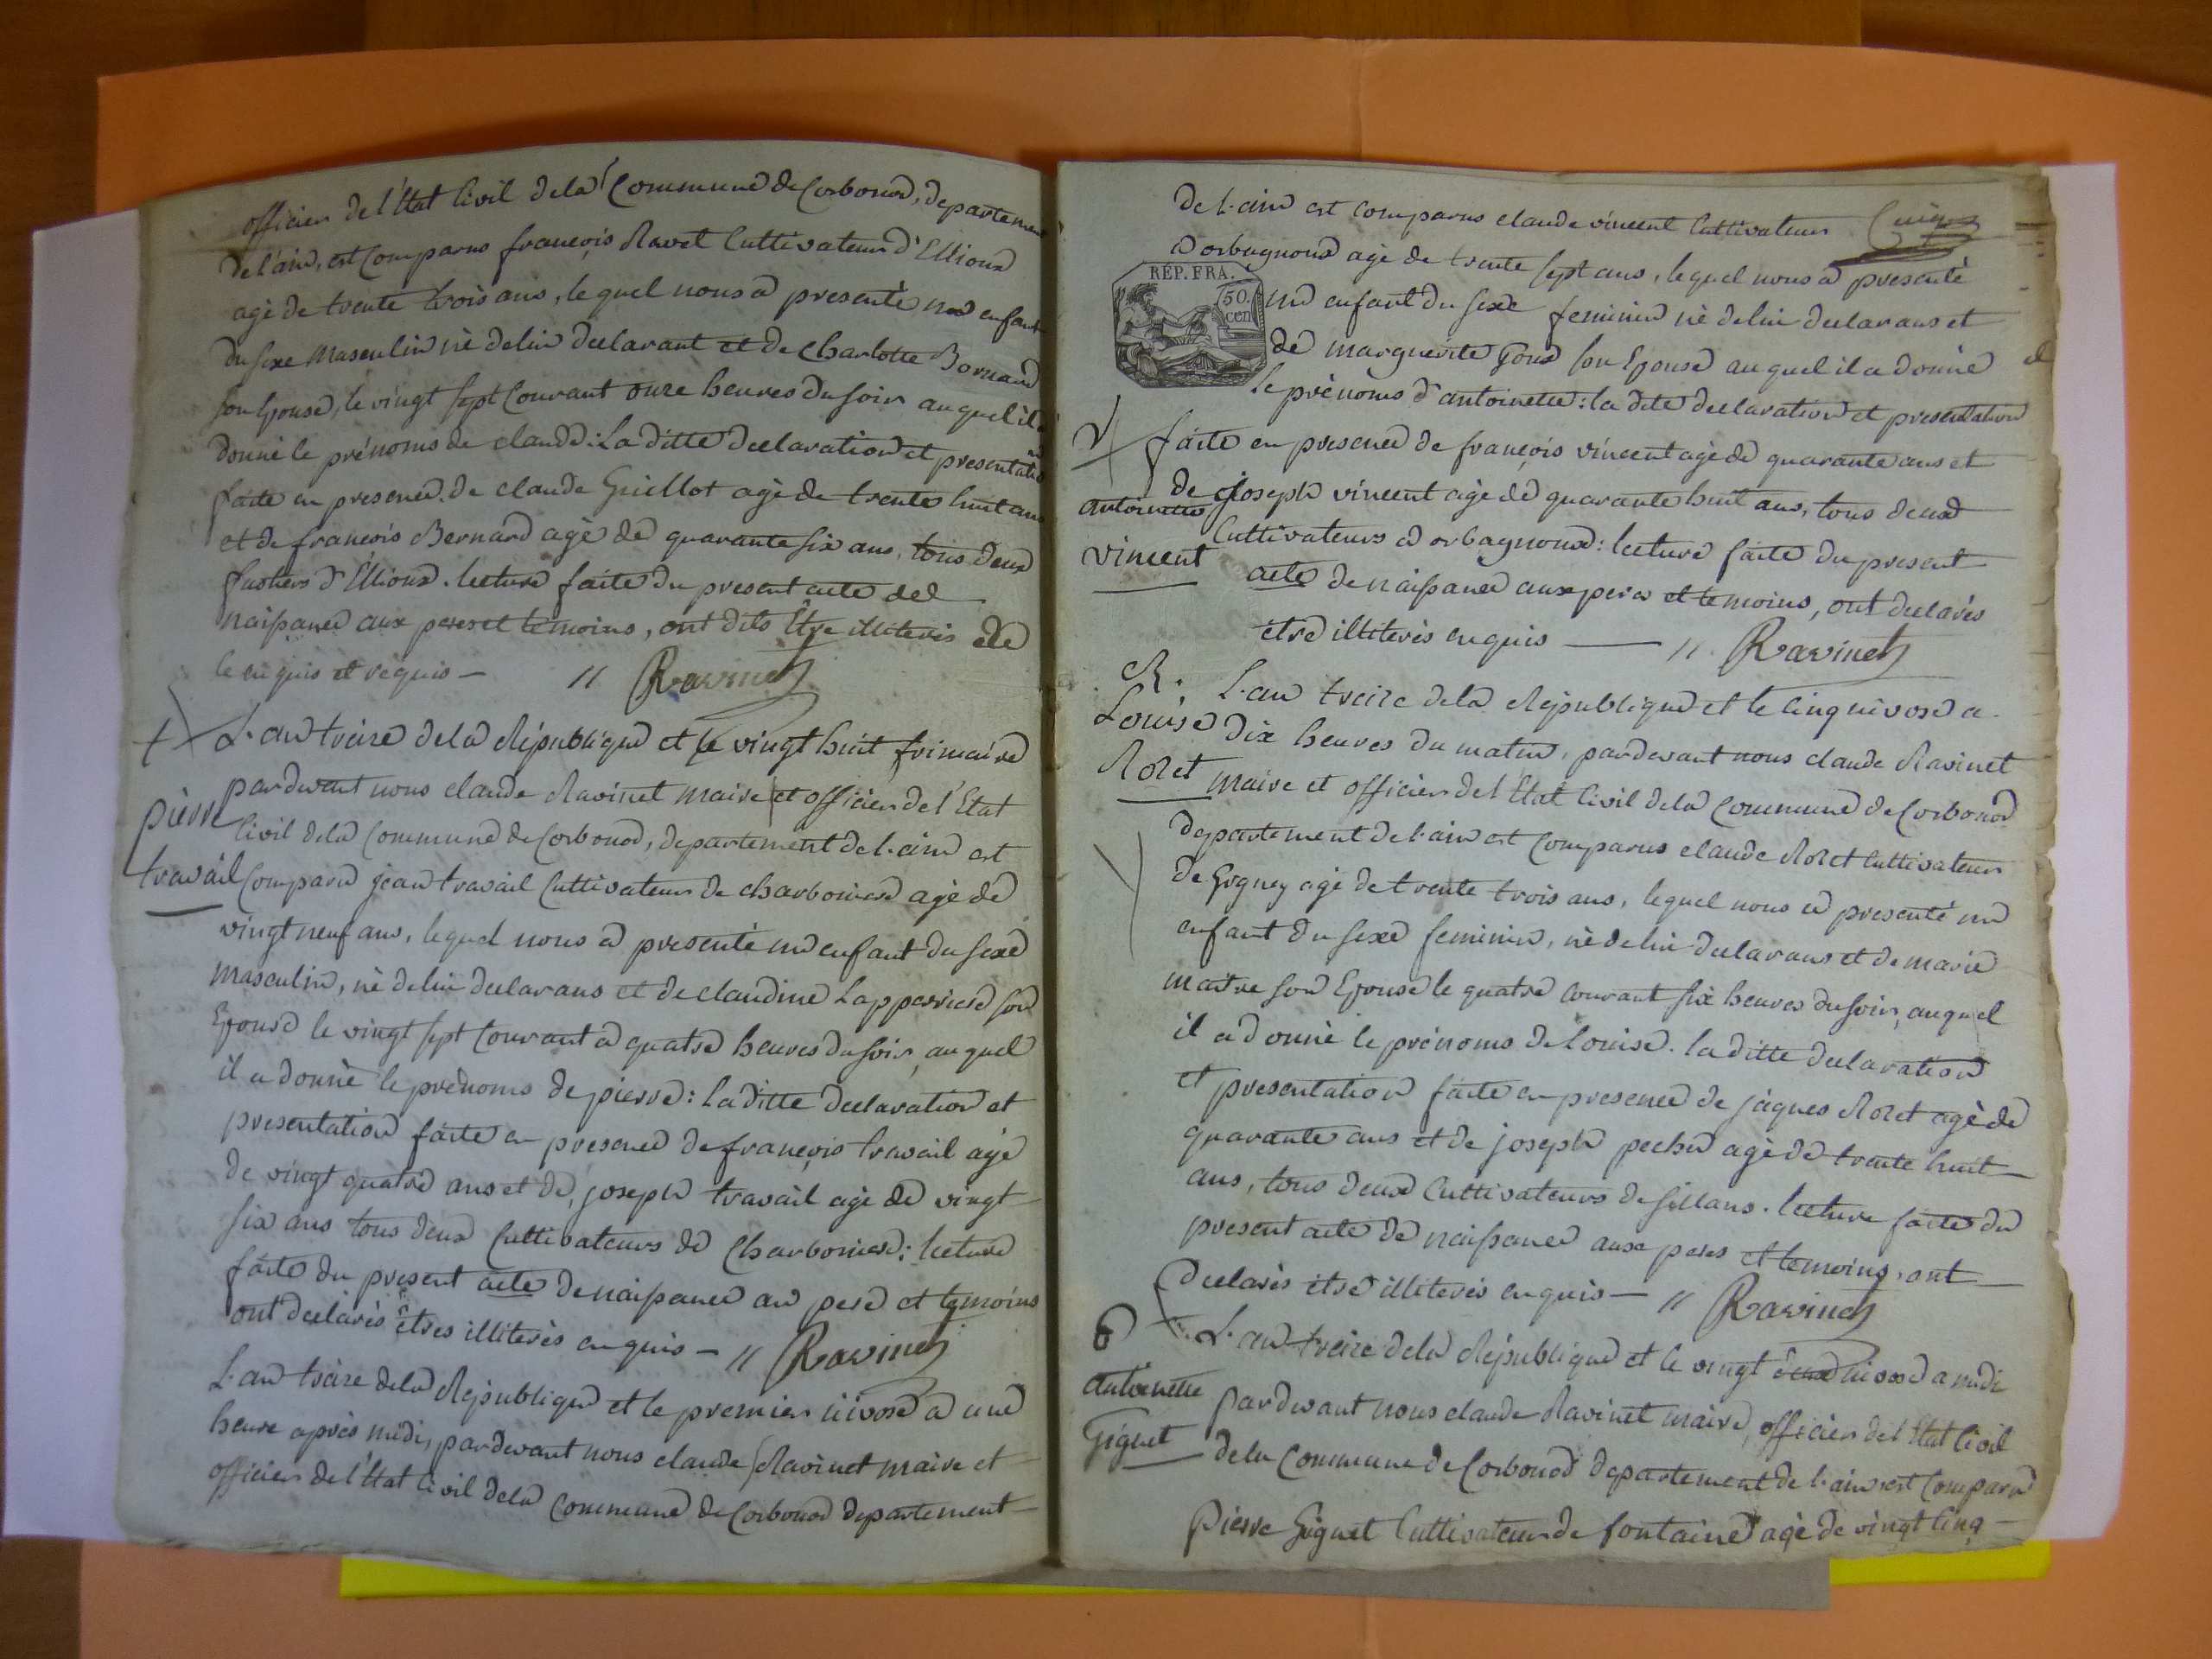 officier de l'Etat Civil de la Commune de Corbonod, departement
de l'ain, est Comparus françois Ravet Cultivateur d'Ellioux
agé de trente trois ans, lequel nous a presenté un enfant
du sexe Masculin né de lui declarant et de Charlotte Bornard
son Epouse, le vingt sept Courant onze heures du soir auquel il a
donné le prénoms de claude: La ditte declaration et presentation
faite en presence de claude Guillot agé de trente huit ans
et de francois Bernard agè de quarante six ans, tous deux
d'Ellioux. lecture faite du present acte de
naissance aux peres et témoins, ont dits Etre illiterés de
le enquis et requis — " Ravinet
L'an treize de la République et le vingt huit frimaire
pardevant nous claude Ravinet maire et officier de l'Etat
pierre
Civil de la Commune de Corbonod, departement de l'ain est
travail
Comparu jean travail Cultivateur de charbonieres agé de
vingt neuf ans, lequel nous a presenté un enfant du sexe
masculin, né de lui declarans et de claudine son
Epouse le vingt sept Courant a quatre heures du soir, auquel
il a donné le prénoms de pierre: la ditte declaration et
presentation faite en presence de françois travail agé
de vingt quatre ans et de joseph travail agé de vingt
six ans tous deux Cultivateurs de Charboniere: lecture
faite du present acte de naissance au pere et temoins
ont declarés etres illiterés enquis — " Ravinet
L'an treize de la République et le premier nivose a une
heure après midi, pardevant nous claude Ravinet maire et
officier de l'Etat Civil de la Commune de Corbonod departement
de l'ain est Comparus claude vincent Cultivateur
a orbagnoux agé de trente sept ans, lequel nous a presenté
RÉP. FRA.
50. cen
un enfant du sexe feminin né de lui declarans et
de marguerite Goux son Epouse auquel il a donné
le prénoms d'antoinette: la dite declaration et presentation
faite en presence de françois vincent agé de quarante ans et
antoinette
de joseph vincent agé de quarante huit ans, tous deux
vincent
Cultivateurs a orbagnoux: lecture faite du present
acte de naissance aux peres et temoins, ont declarés
etre illiterés enquis — " Ravinet
R.
L'an treize de la République et le cinq nivose a
Louise
dix heures du matin, pardevant nous claude Ravinet
Rolet
maire et officier de l'Etat Civil de la Commune de Corbonod
departement de l'ain est Comparus claude Rolet Cultivateur
de agé de trente trois ans, lequel nous a presenté un
enfant du sexe feminin, né de lui declarans et de marie
maitre son Epouse le quatre courant six heures du soir, auquel
il a donné le prénoms de louise. la ditte declaration
et presentation faite en presence de jaques Rolet agé de
quarante ans et de joseph agé de trente huit
ans, tous deux Cultivateurs de sillans. lecture faite du
present acte de naissance aux peres et temoins, ont
declarés etre illiterés enquis — " Ravinet
L'an treize de la République et le vingt deux nivose a midi
antoinette
pardevant nous claude Ravinet maire, officier de l'Etat Civil
Giguet
de la Commune de Corbonod departement de l'ain est Comparu
Pierre Giguet Cultivateur de fontaine agé de vingt Cinq